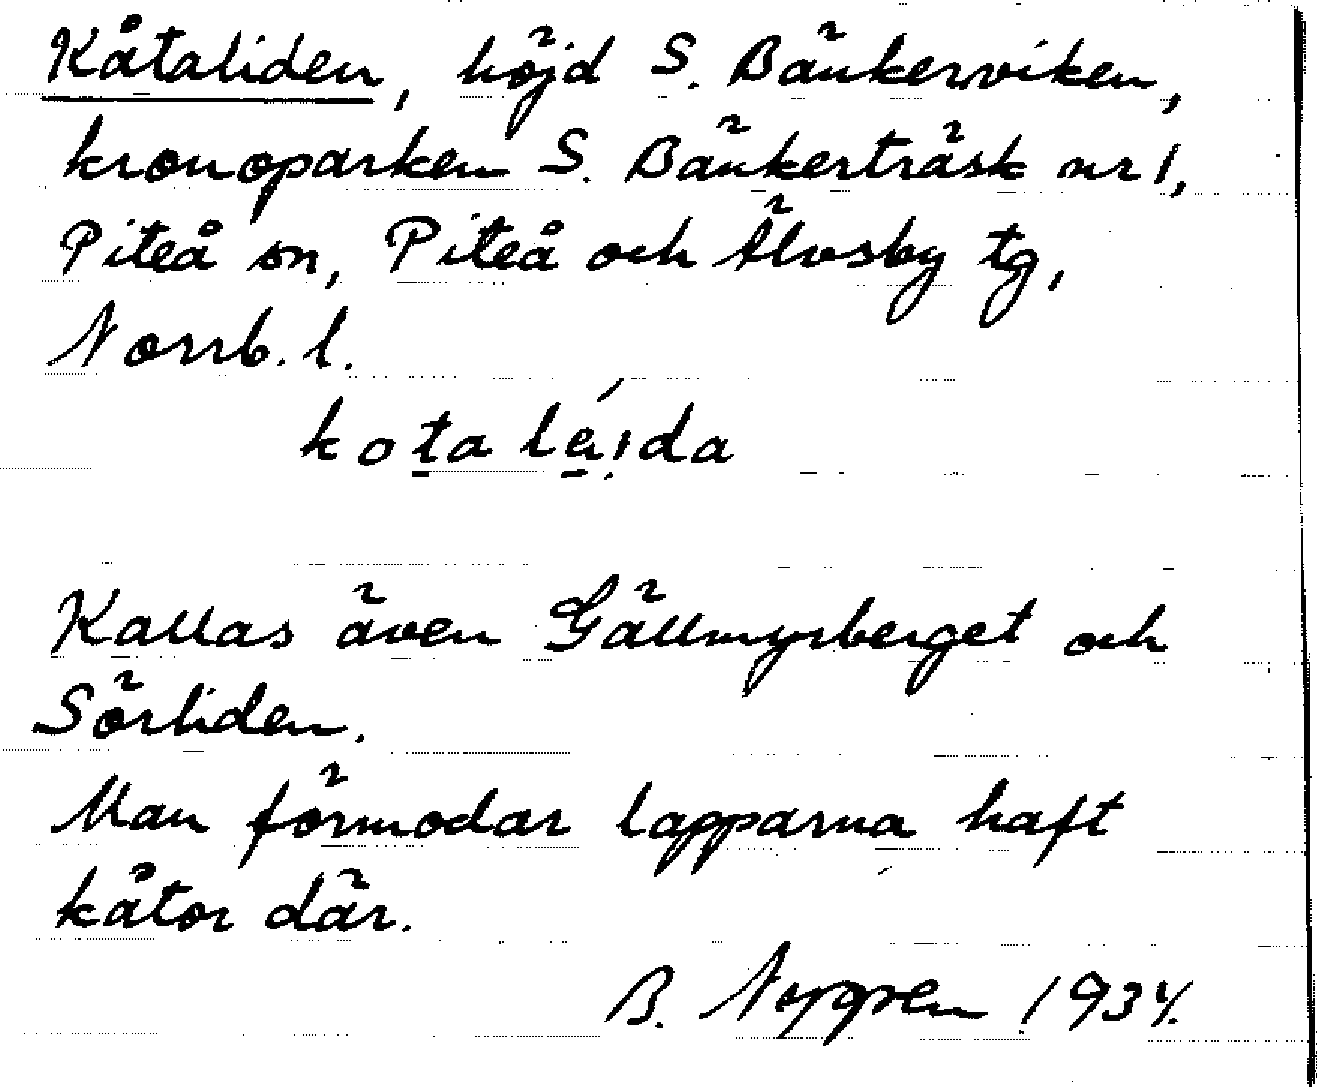 Kåtaliden, höjd S. Bänkerviken,
kronoparken S. Bänkerträsk nr 1,
Piteå sn, Piteå och Älvsby tg,
Norrb. l.
Kallas även Gällmyrberget och
Sörliden.
Man förmodar lapparna haft
kåtor där.
B. Nygren 1934.